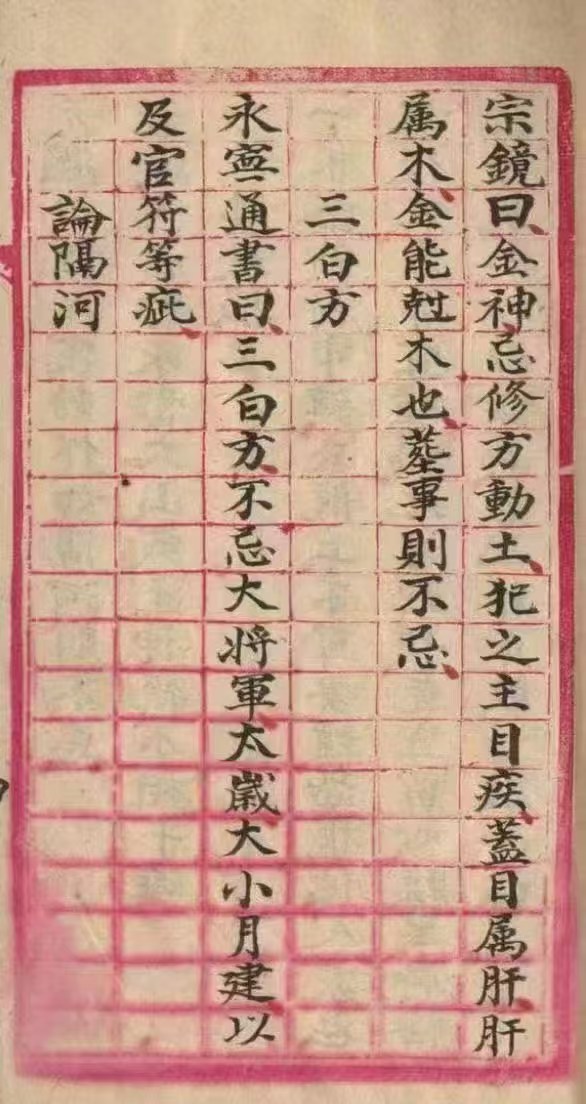 宗鏡曰金神忌修方動土犯之主目疾蓋目属肝肝
属木金能尅木也塟事則不忌
三白方
永寧通書曰三白方不忌大将軍太歲大小月建以
及官符等疵
論隔河